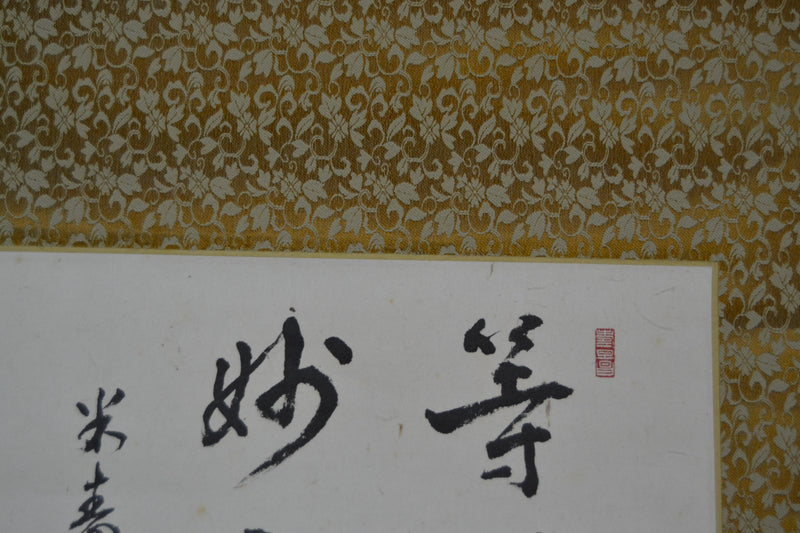 等
妙
米寿